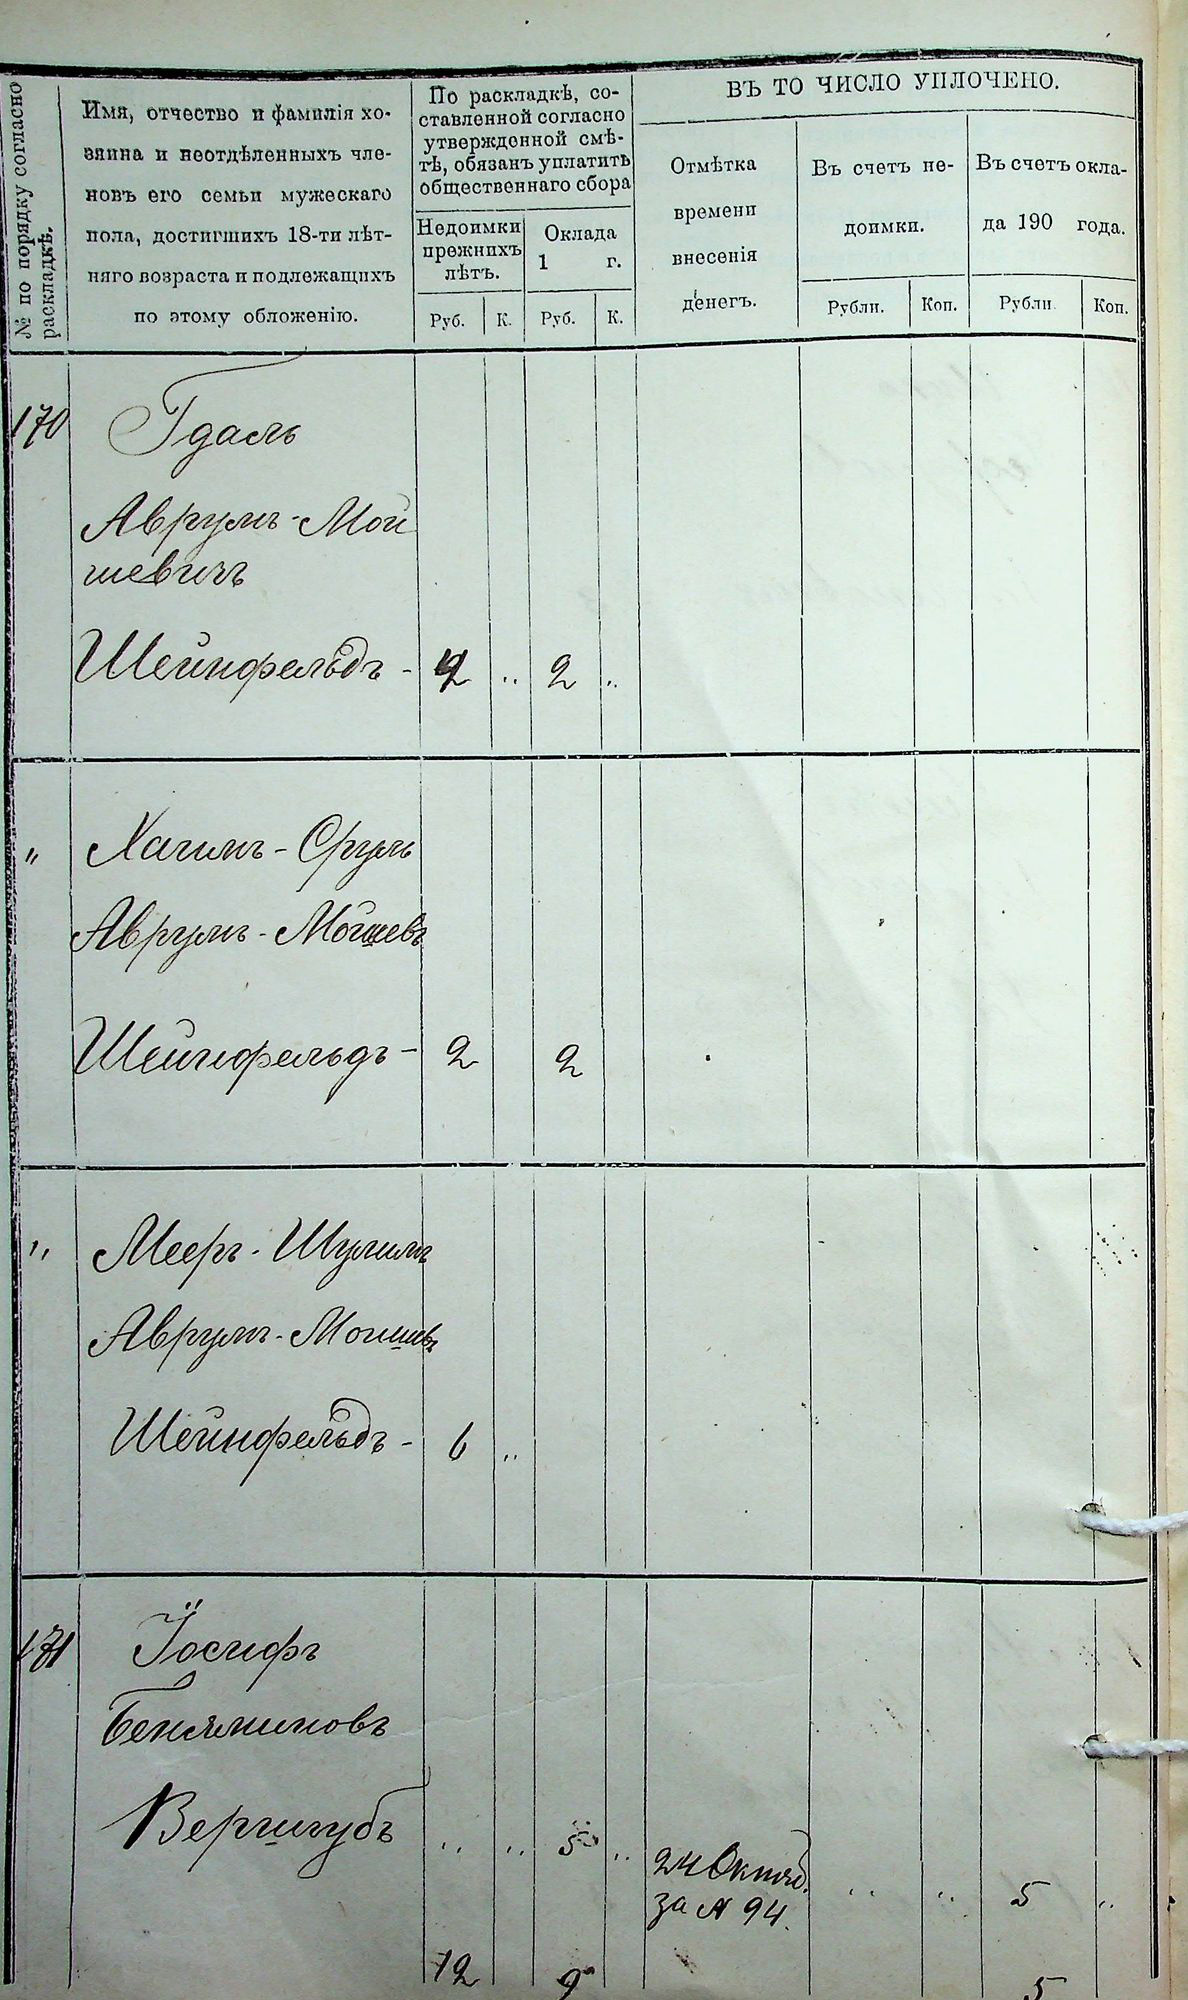 № по порядку согласно
раскладкѣ.
Имя, отчество и фамилія хо-
зяина и неотдѣленныхъ чле-
новъ его семьи мужескаго
пола, достигшихъ 18-ти лѣт-
няго возраста и подлежащихъ
по этому обложенію.
По раскладкѣ, со-
ставленной согласно
утвержденной смѣ-
тѣ, обязанъ уплатить
общественнаго сбора
Недоимки
прежнихъ
лѣтъ.
Оклада
1 г.
Руб. К. Руб. К.
ВЪ ТО ЧИСЛО УПЛОЧЕНО.
Отмѣтка
времени
внесенія
денегъ.
Въ счетъ не-
доимки.
Въ счетъ окла-
да 190 года.
Рубли. Коп. Рубли Коп.
170 Гдаль
Аврумъ-Мой
шевичъ
Шейнфельдъ - 2 .. 2 ..
" Хаимъ-Сруль
Аврумъ-Мойшевъ
Шейнфельдъ - 2 2
" Мееръ-Шулимъ
Аврумъ-Моишевъ
Шейнфельдъ - 6 ..
171 Іосифъ
Беняминовъ
Вершгубъ .. .. 5 ..
24 Октяб.
за № 94.
.. .. 5 ..
12 9 5